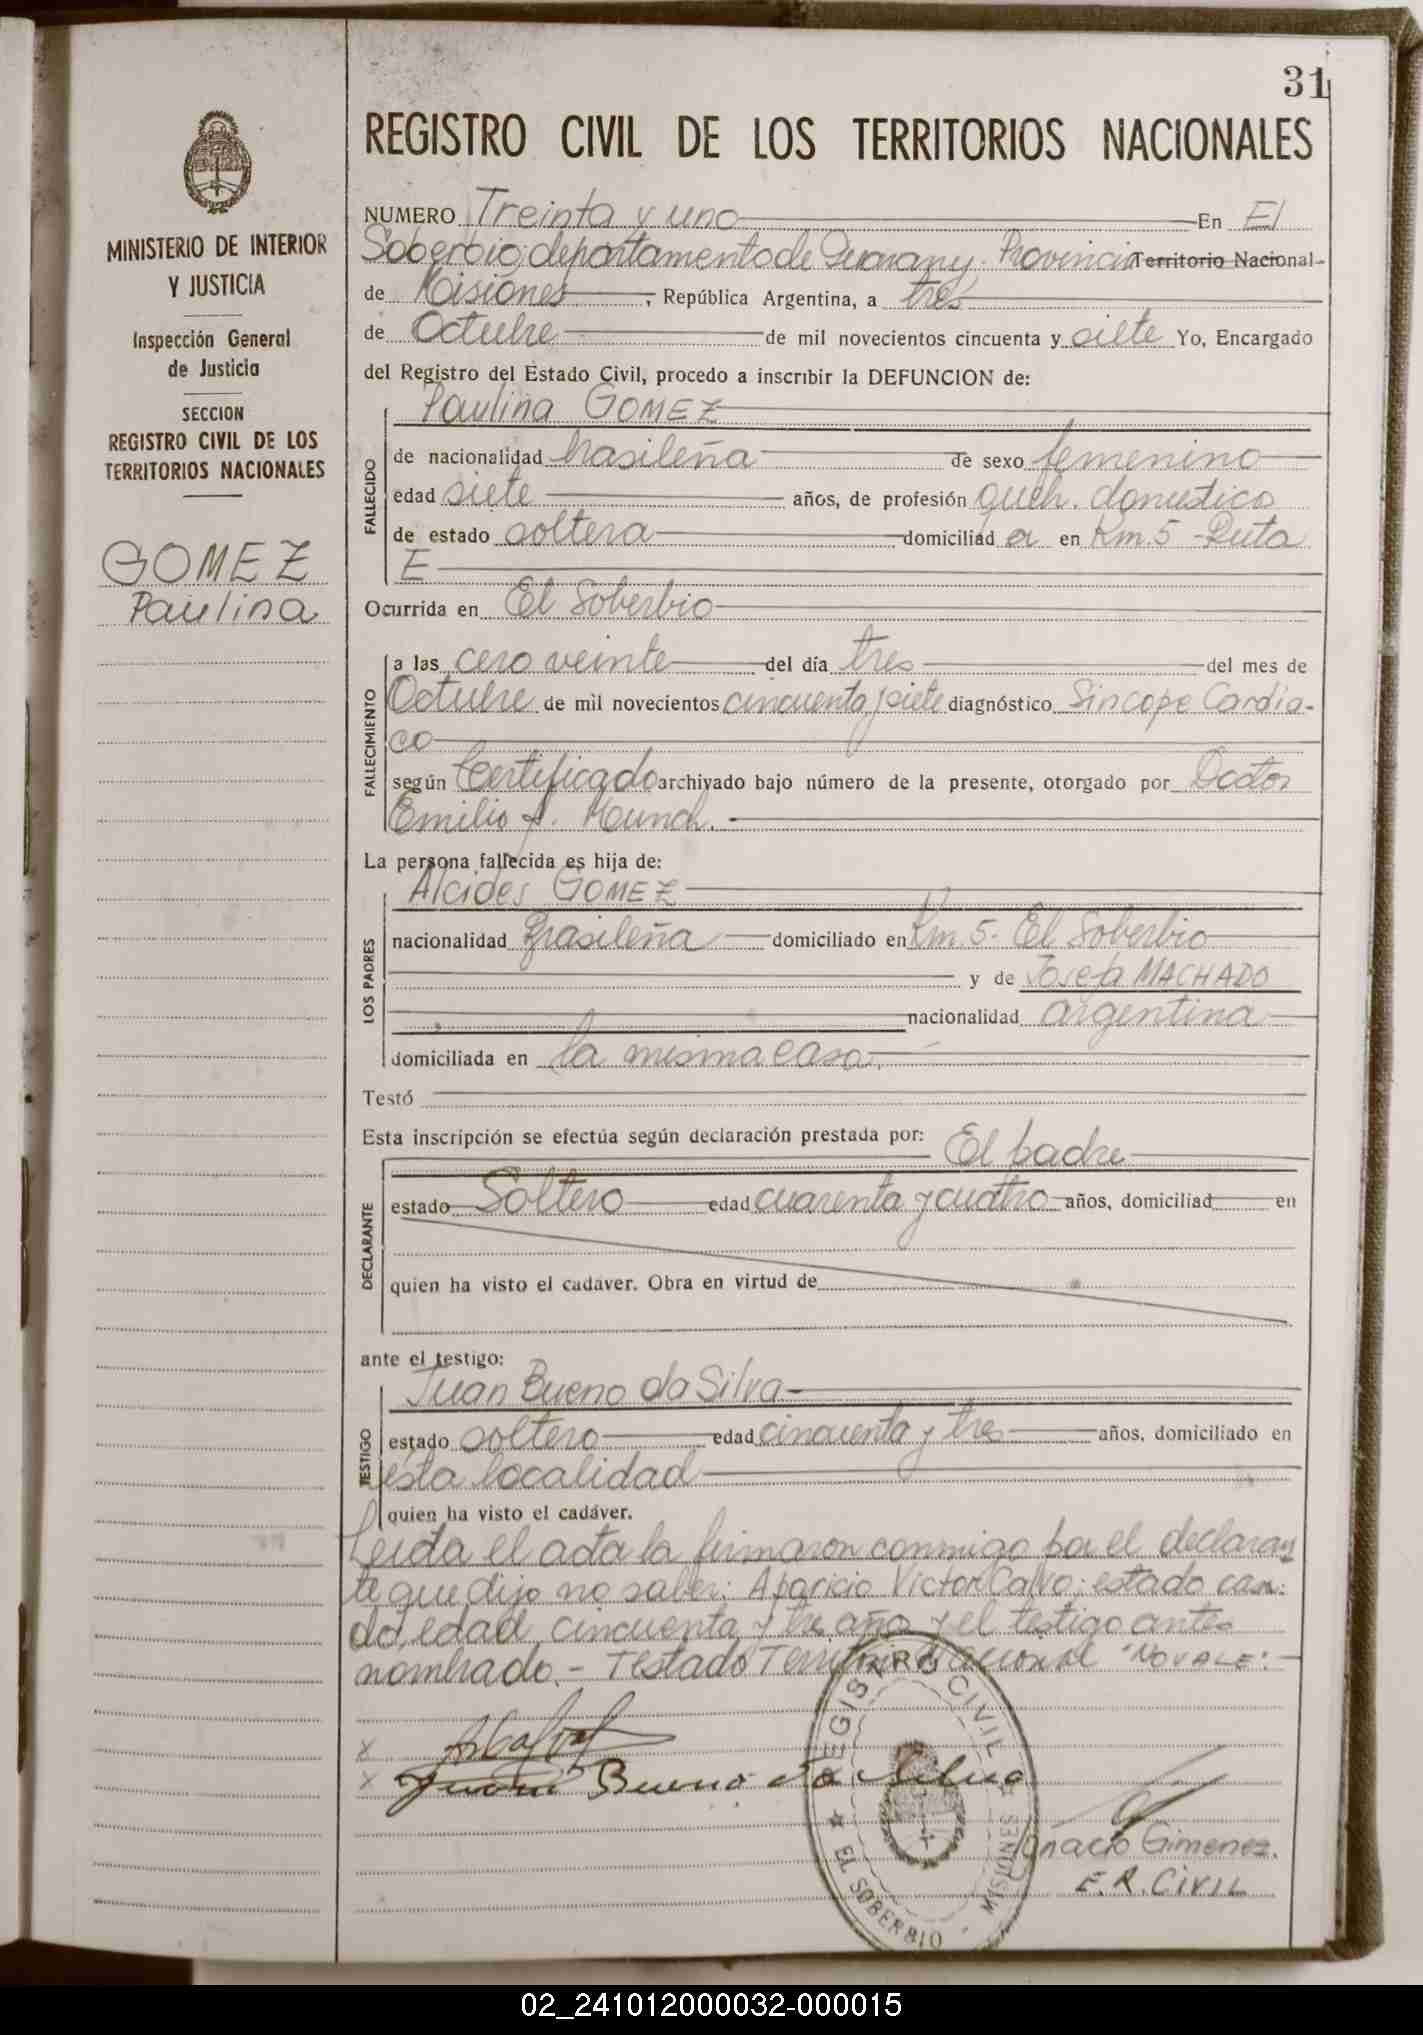 31
REGISTRO CIVIL DE LOS TERRITORIOS NACIONALES
MINISTERIO DE INTERIOR
Y JUSTICIA
Inspección General
de Justicia
SECCION
REGISTRO CIVIL DE LOS
TERRITORIOS NACIONALES
GOMEZ
Paulina
NUMERO Treinta y uno En El
Soberbio, departamento de Guarany. Provincia Territorio Nacional
de Misiones, República Argentina, a tres
de Octubre de mil novecientos cincuenta y siete Yo, Encargado
del Registro del Estado Civil, procedo a inscribir la DEFUNCION de:
FALLECIDO
Paulina GOMEZ
de nacionalidad brasileña de sexo femenino
edad siete años, de profesión queh. domestico
de estado soltera domiciliad a en Km 5 - Ruta
E
Ocurrida en El Soberbio
FALLECIMIENTO
a las cero veinte del día tres del mes de
Octubre de mil novecientos cincuenta y siete diagnóstico Sincope Cardia-
co
según Certificado archivado bajo número de la presente, otorgado por Doctor
Emilio A. Munch.
La persona fallecida es hija de:
LOS PADRES
Alcides GOMEZ
nacionalidad Brasileña domiciliado en Km. 5- El Soberbio
y de Josefa MACHADO
nacionalidad argentina
domiciliada en la misma casa.
Testó
Esta inscripción se efectúa según declaración prestada por: El padre
DECLARANTE
estado Soltero edad cuarenta y cuatro años, domiciliad en
quien ha visto el cadáver. Obra en virtud de
ante el testigo:
TESTIGO
Juan Bueno da Silva
estado soltero edad cincuenta y tres años, domiciliado en
esta localidad
quien ha visto el cadáver.
Leida el acta la firmaron conmigo por el declaran
te que dijo no saber: Aparicio Victor Calvo: estado casa:
do, edad cincuenta y tres año y el testigo antes
nombrado.- Testado Territorio Nacional "NO VALE:-
x
x Juan Bueno da Silva
REGISTRO CIVIL
MISIONES
EL SOBERBIO
Ignacio Gimenez.
E.R. CIVIL
02_241012000032-000015